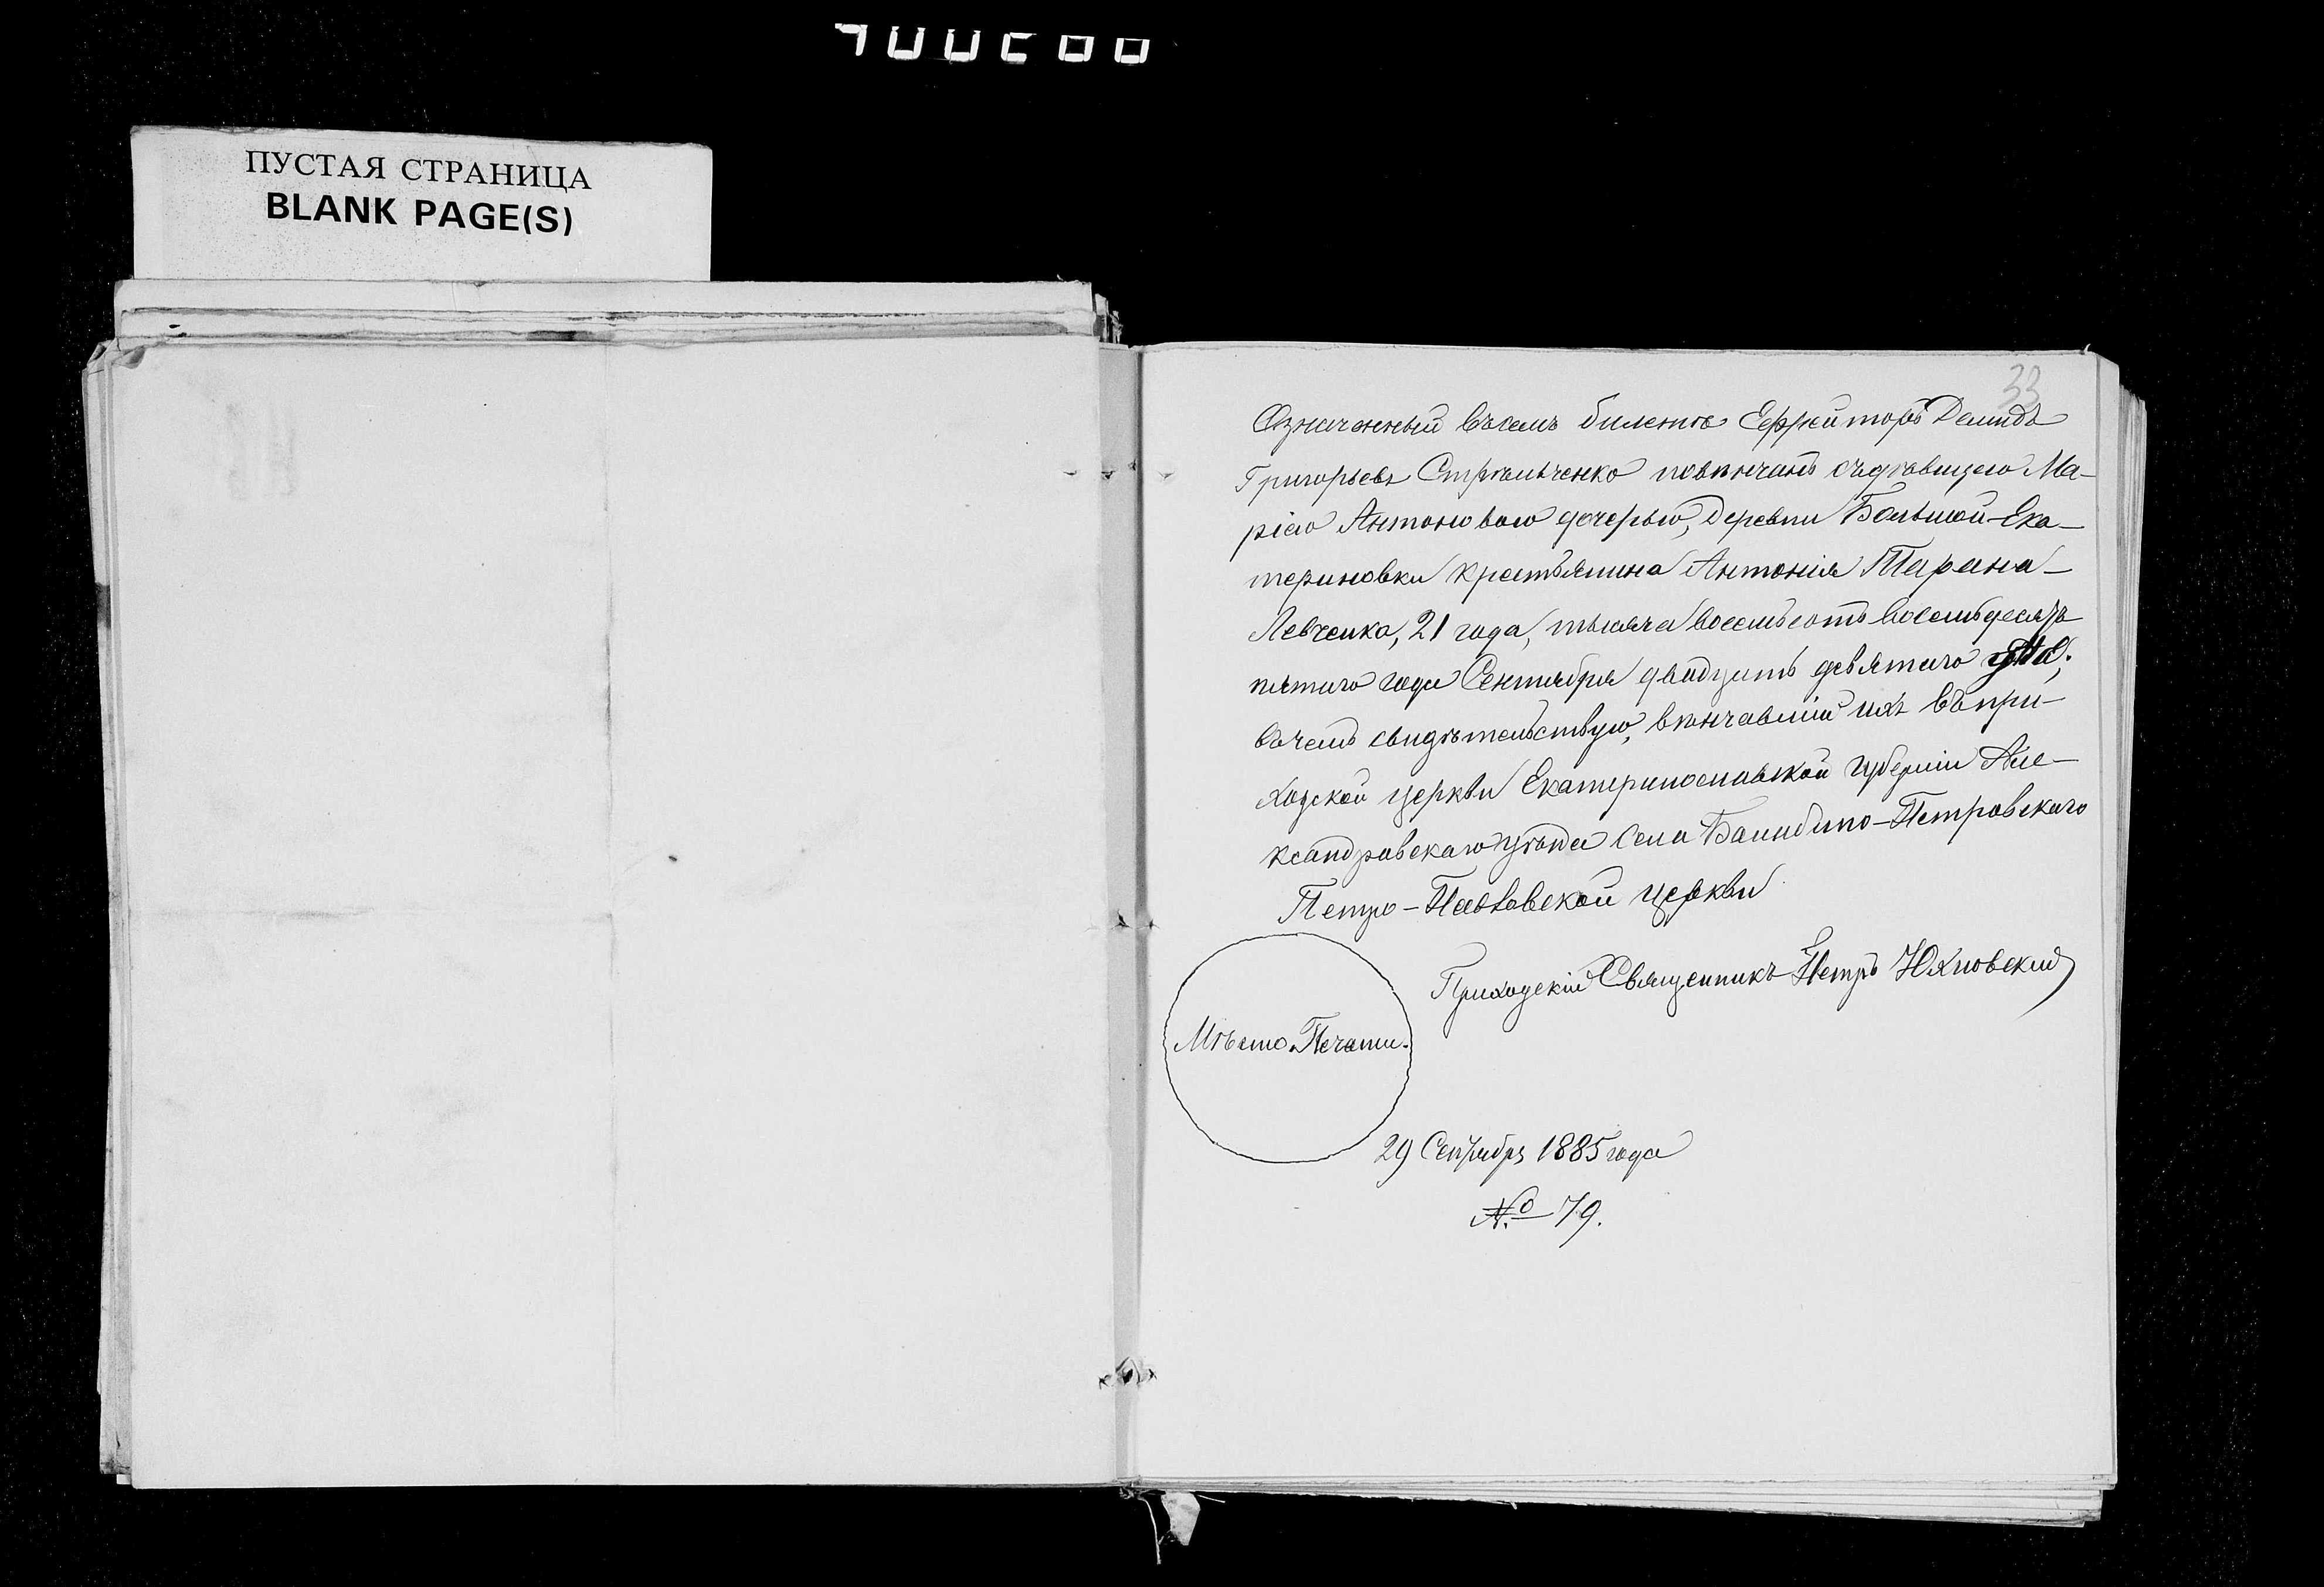 ПУСТАЯ СТРАНИЦА
BLANK PAGE(S)
33
Означенный въ семъ билетѣ Ефрейторъ Демидъ
Григорьевъ Стрѣльченко повѣнчанъ съ дѣвицею Ма-
ріею Антоновою дочерью, деревни Большой-Ека-
териновки крестьянина Антонія Тарана-
Левченка, 21 года, тысяча восемьсотъ восемьдесятъ
пятаго года Сентября двадцать девятаго дня;
въ чемъ свидѣтельствую, вѣнчавшій ихъ въ при-
ходской церкви Екатеринославской губерніи Але-
ксандровскаго уѣзда села Балабино-Петровскаго
Петро-Павловской церкви
Приходскій Священникъ Петръ Юхновскій
Мѣсто Печати.
29 Сентября 1885 года
№ 79.